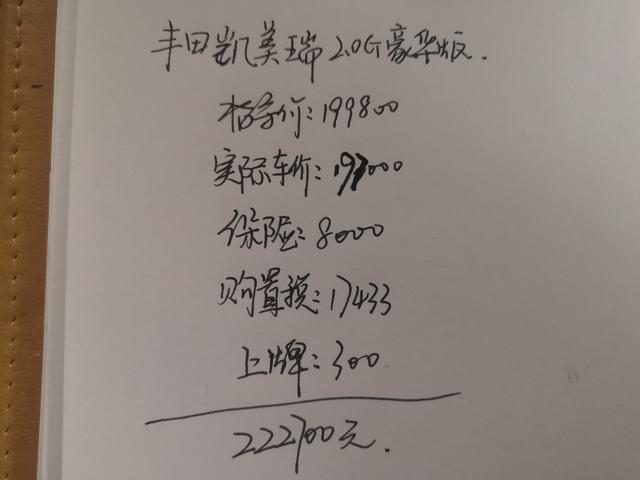 丰田凯美瑞 2.0G豪华版.
指导价:199800
实际车价:197000
保险:8000
购置税:17433
上牌:300
222700元.